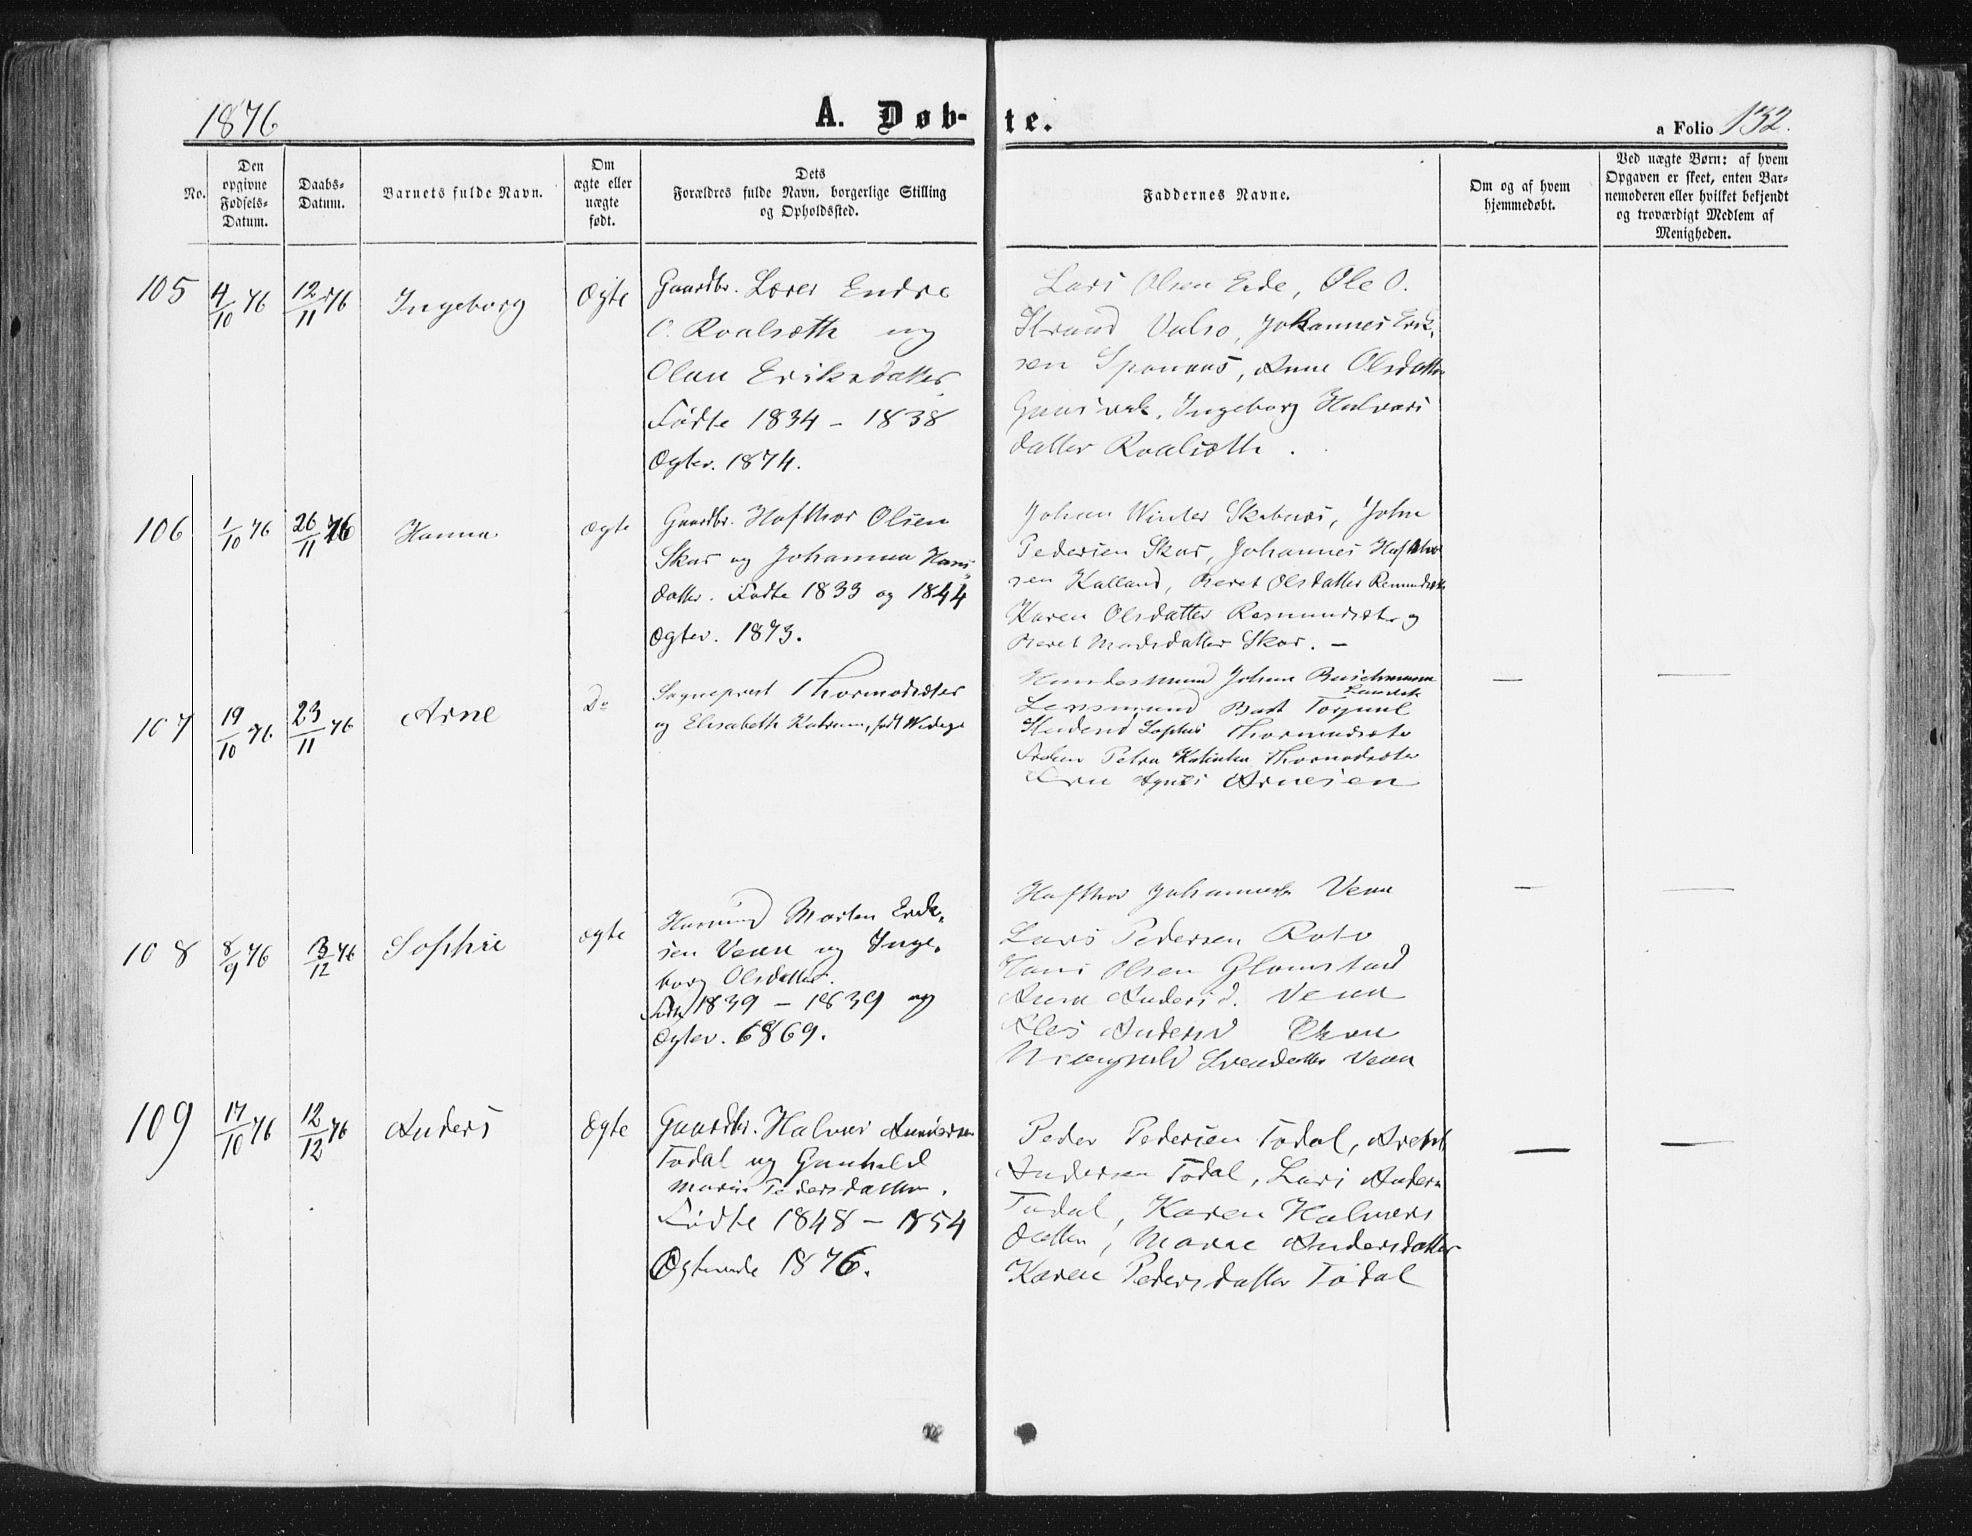 1876
A. Døb-te.
a Folio 132.
No.
Den opgivne Fødsels-Datum.
Daabs-Datum.
Barnets fulde Navn.
Om ægte eller uægte født.
Dets Forældres fulde Navn, borgerlige Stilling og Opholdssted.
Faddernes Navne.
Om og af hvem hjemmedøbt.
Ved uægte Børn: af hvem Opgaven er skeet, enten Barnemoderen eller hvilket bekjendt og troværdigt Medlem af Menigheden.
105
4/10 76
12/11 76
Ingeborg
Ægte
Gaardbr. Lærer Endre
O. Roalsæth og
Olau Eriksdatter
Fødte 1834 - 1838
Ægtev. 1874.
Lars Olsen Ede, Ole O.
Strand Valsø, Johannes Erik-
sen Sponaas, Anne Olsdatter
Ingeborg Halvors
datter Roalsæth.
106
1/10 76
26/11 76
Hanna
ægte
Gaardbr. Hafthor Olsen
Skar og Johanna Hans-
datter. Fødte 1833 og 1844
Ægtev. 1873.
Johan Winter Skabnæs, John
Pedersen Skar, Johannes Hafthor
sen Kalland, Beret Olsdatter
Karen Olsdatter og
Beret Madsdatter Skar. -
107
19/10 76
23/11 76
Arne
Do
Sogneprest Thormodsæter
og Elisabeth Katrine, født
Handelsmand Johan Buschmann
Lensmand Bast Torjuul
Student Sophus Thormodsæter
Frøken Petra Katinka Thormodsæter
Agnes Arnesen
108
8/9 76
3/12 76
Sophie
ægte
Husmand Morten Erik-
sen Venn og Inge-
borg Olsdatter.
Fødte 1839 - 1839 og
Ægtev. 1869.
Hafthor Johannes Venn
Lars Pedersen Roto
Hans Olsen Glomstad
Anne Anders d. Venn
Svendsdatter Venn
109
17/10 76
12/12 76
Anders
Ægte
Gaardbr. Halvor Andersen
Todal og Gunhild
Marie Pedersdatter.
Fødte 1848 - 1854
Ægteviede 1876.
Peder Pedersen Todal, Arebt
Andersen Todal, Lars Anders
Todal, Karen Halvors
datter, Marie Andersdatter
Karen Pedersdatter Todal